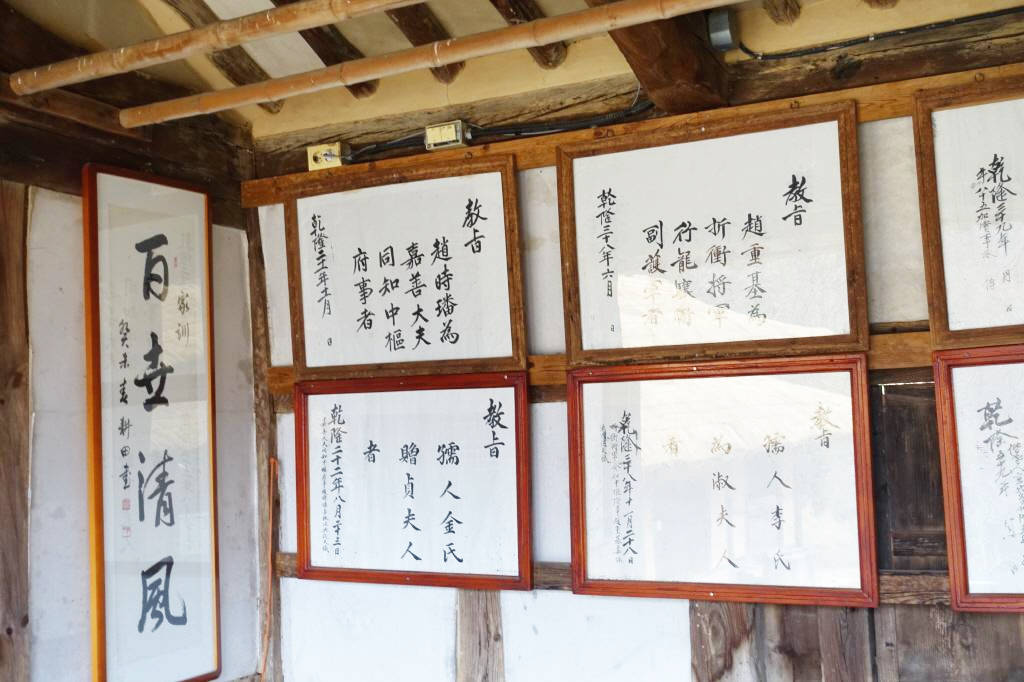 家訓
百世清風
癸未春 耕田書
教旨
趙時璠為
嘉善大夫
同知中樞
府事者
乾隆
教旨
趙重基為
折衝將軍
行龍驤衛
副護軍者
乾隆三十八年六月 日
乾隆三十九年 月 日
年八十五加資事承
教旨
孺人金氏
贈貞夫人
者
乾隆二十二年八月二十三日
教旨
孺人李氏
為淑夫人
者
乾隆三十八年十一月二十八日
乾隆五十九年